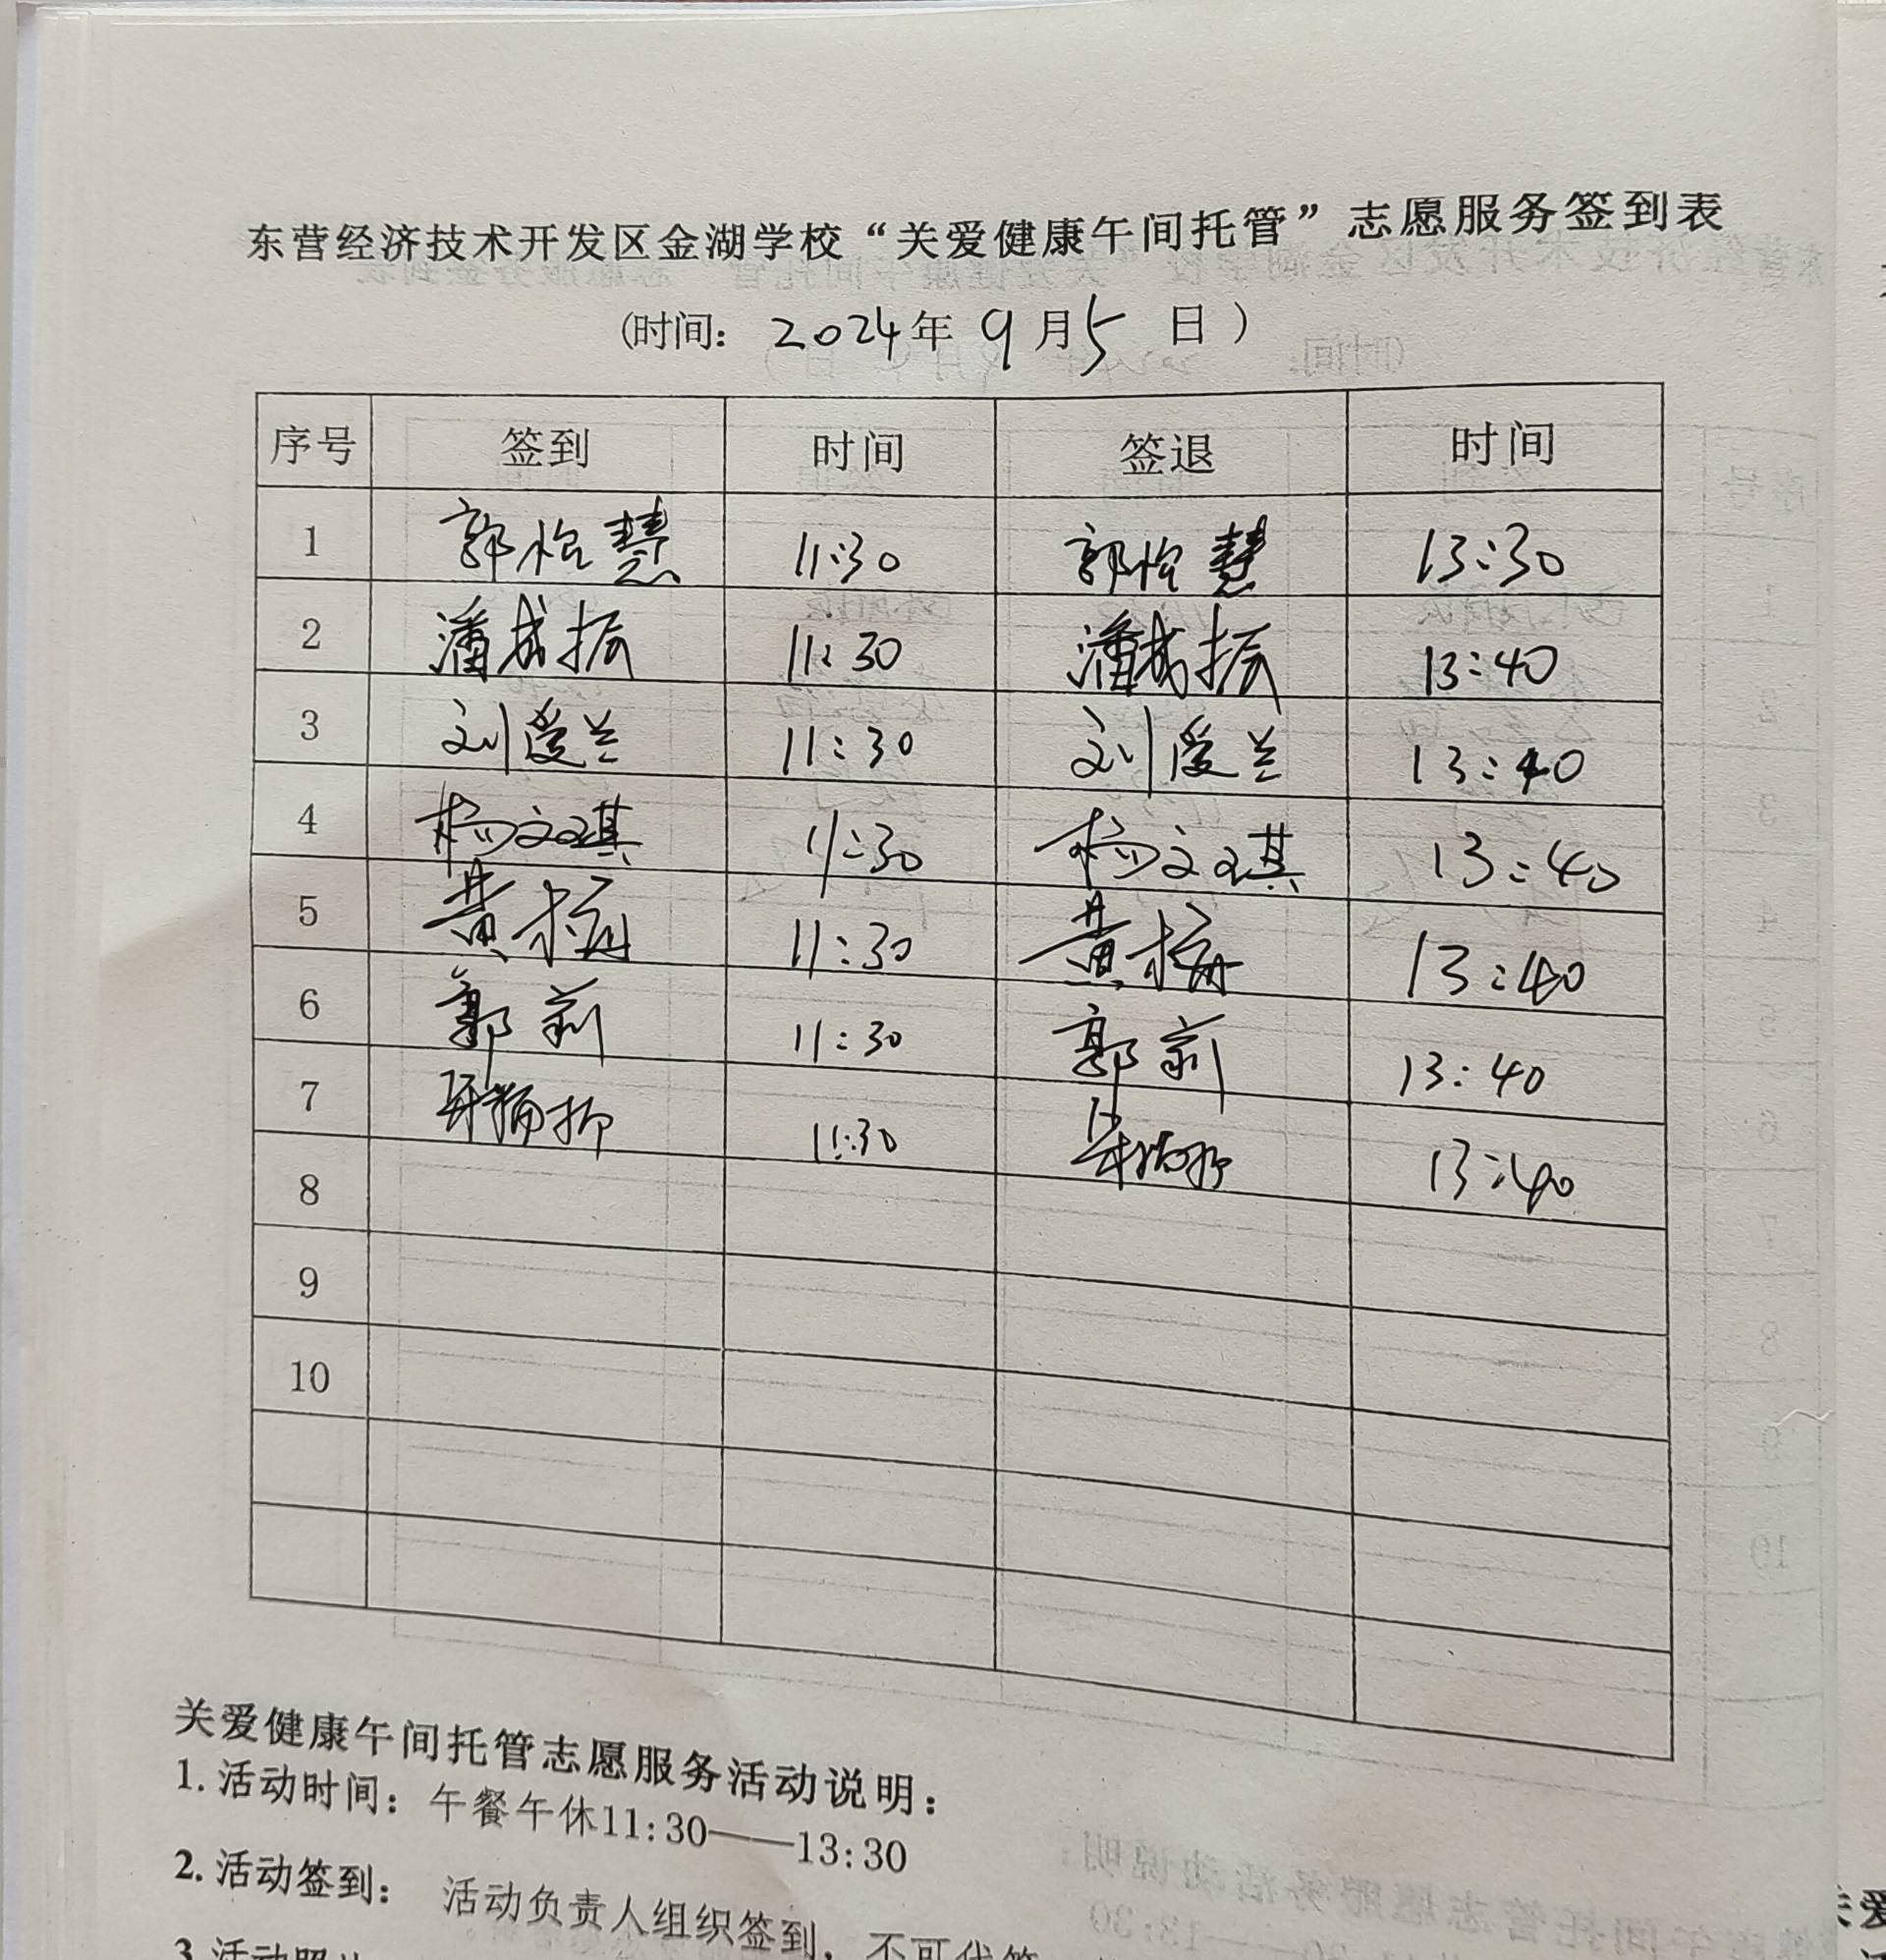 东营经济技术开发区金湖学校“关爱健康午间托管”志愿服务签到表
(时间: 2024年 9月5 日)
序号 签到 时间 签退 时间
1 郭怡慧 11:30 郭怡慧 13:30
2 潘成振 11:30 潘成振 13:40
3 刘爱兰 11:30 刘爱兰 13:40
4 杨文琪 11:30 杨文琪 13:40
5 黄 11:30 黄 13:40
6 郭莉 11:30 郭莉 13:40
7 11:30 13:40
8
9
10
关爱健康午间托管志愿服务活动说明:
1.活动时间: 午餐午休11:30——13:30
2.活动签到: 活动负责人组织签到,不可代签
3.活动照片